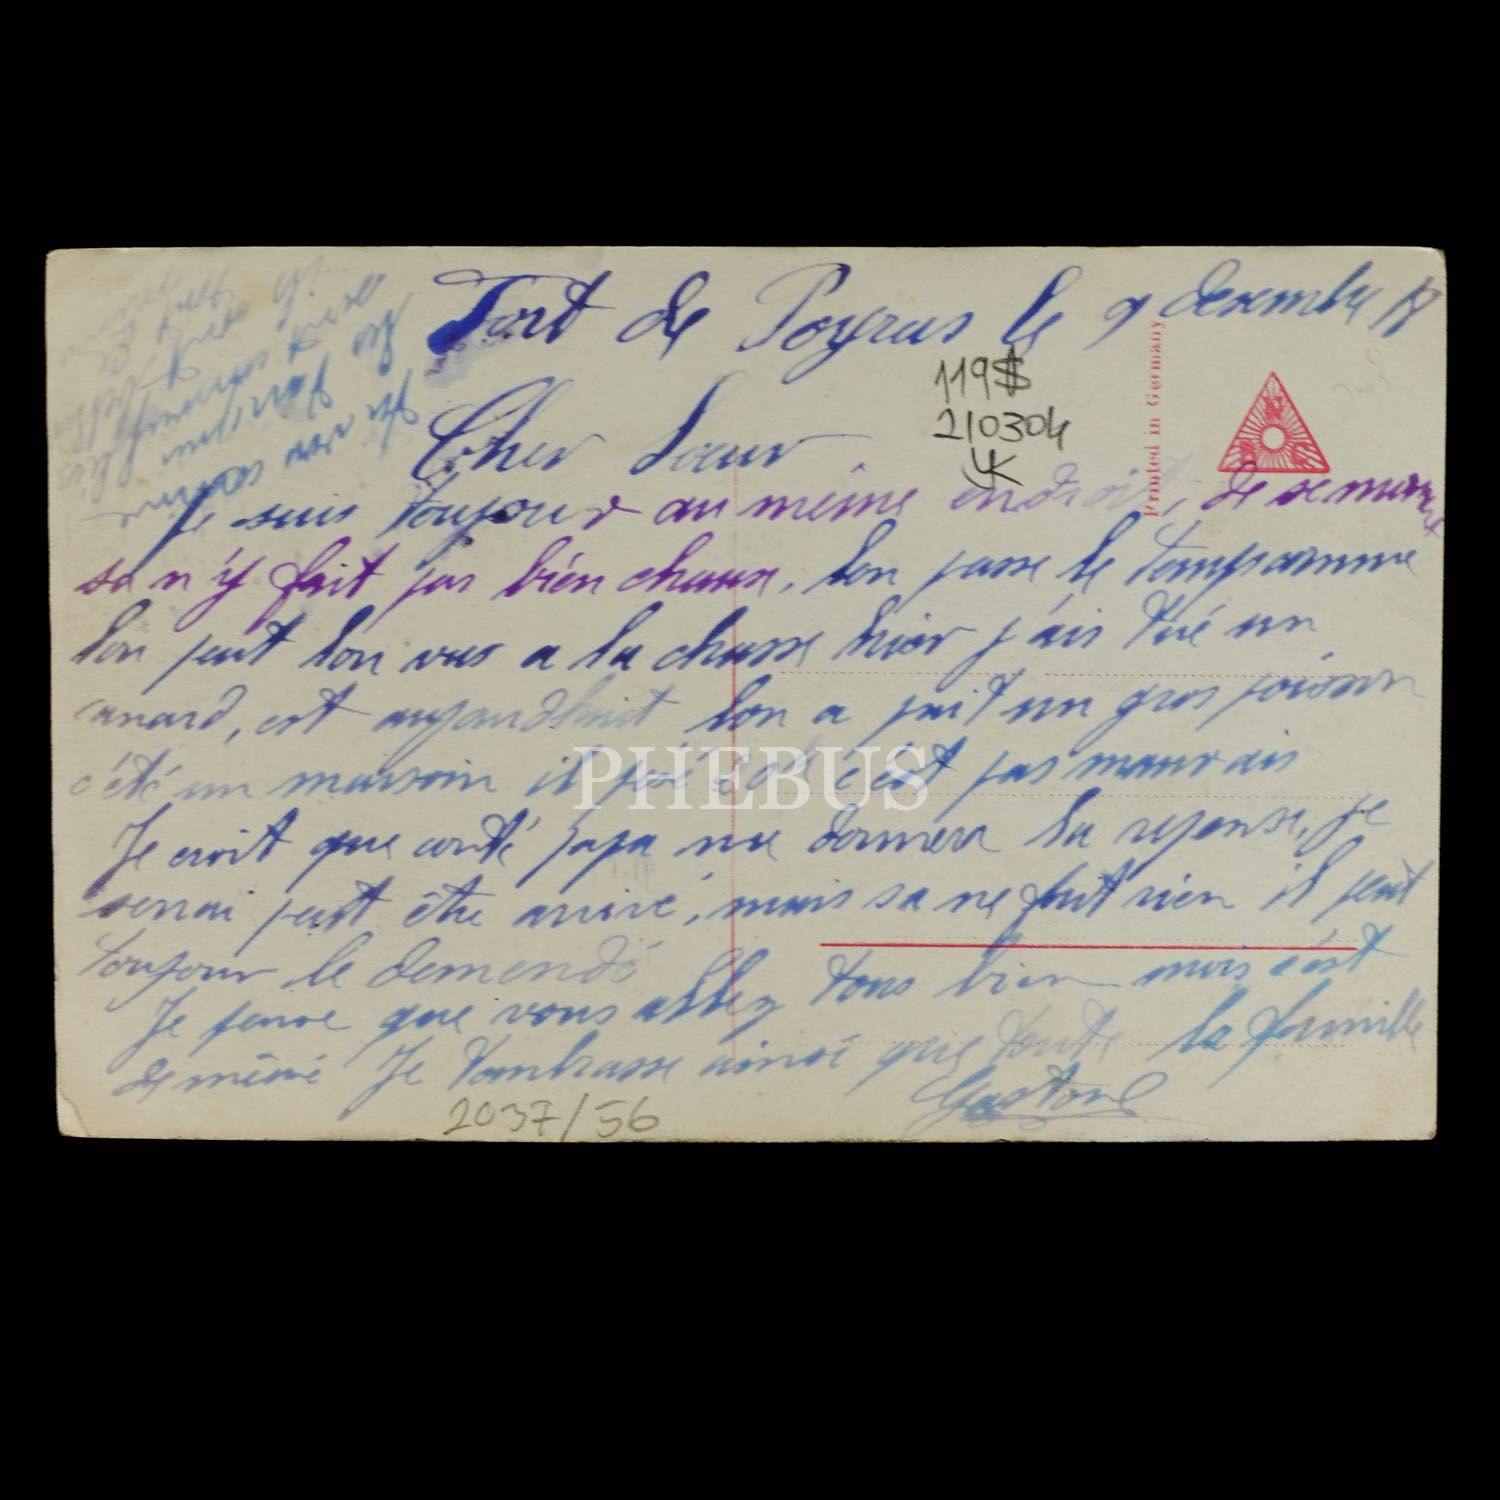 Fort de Poyras le 9 desembre 18
Cher Sœur
Je suis toujour au même endroit, de se moment
sa n'y fait pas bien chaux, lon passe le temps comme
lon peut lon vas a la chasse hier j'ais tué un
canard, est aujourdhuit lon a pait un gros poisson
c'été un marsoin il pesé c'est pas mauvais
Je croit que conté papa me donnera la reponse, je
serai peut être arivé, mais sa ne fait rien il peut
toujour le demendé
Je pense que vous allez tous bien mois c'est
de même Je t'embrasse ainsi que toute la famille
Gaston
119$
210304
YK
Printed in Germany
N
B G
PHEBUS
2037/56